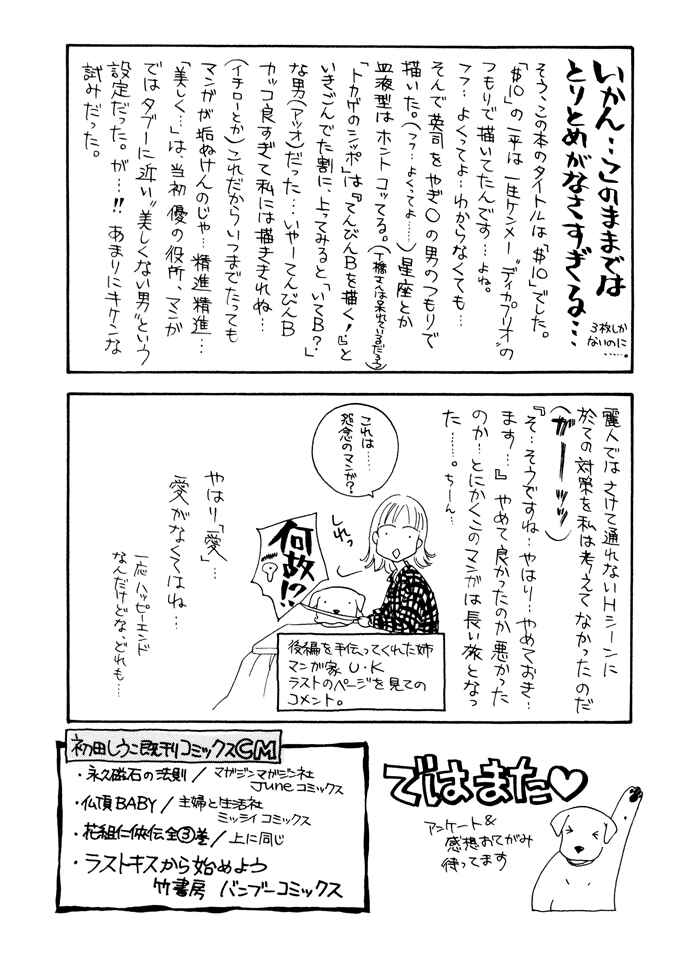 いかん…このままでは
とりとめがなさすぎる…
3枚しか
ないのに
……。
そう、この本のタイトルは「$10」でした。
「$10」の一平は一生ケンメー"ディカプリオ"の
つもりで描いてたんです…よね。
フフ…よくってよ…わからなくても…
そんで英司をやぎ〇の男のつもりで
描いた。(フフ…よくってよ……)星座とか
血液型はホントコッてる。(丁橋さんは呆れているだろう)
「トカゲのシッポ」は『てんびんBを描く!』と
いきごんでた割に、上ってみると「いてB?」
な男(アツオ)だった…いやーてんびんB
カッコ良すぎて私には描ききれね…
(イチローとか)これだからいつまでたっても
マンガが垢ぬけんのじゃ…精進精進…
「美しく…」は、当初優の役所、マンガ
ではタブーに近い"美しくない男"という
設定だった。が…!!あまりにキケンな
試みだった。
麗人ではさけて通れないHシーンに
於ての対策を私は考えてなかったのだ
(がーッッ)
『そ…そうですね…やはり…やめておき…
ます…』やめて良かったのか悪かった
のか…とにかくこのマンガは長い旅となっ
た……。ちーん…
これは……
怨念のマンガ?
しれっ
何故!?
やはり「愛」…
愛がなくてはね…
一応ハッピーエンド
なんだけどな、どれも…
後編を手伝ってくれた姉
マンガ家 U・K
ラストのページを見ての
コメント。
初田しうこ既刊コミックスCM
・永久磁石の法則/マガジンマガジン社
Juneコミックス
・仏頂BABY/主婦と生活社
ミッシイコミックス
・花組仁侠伝全③巻/上に同じ
・ラストキスから始めよう
竹書房 バンブーコミックス
ではまた♡
アンケート&
感想おてがみ
待ってます